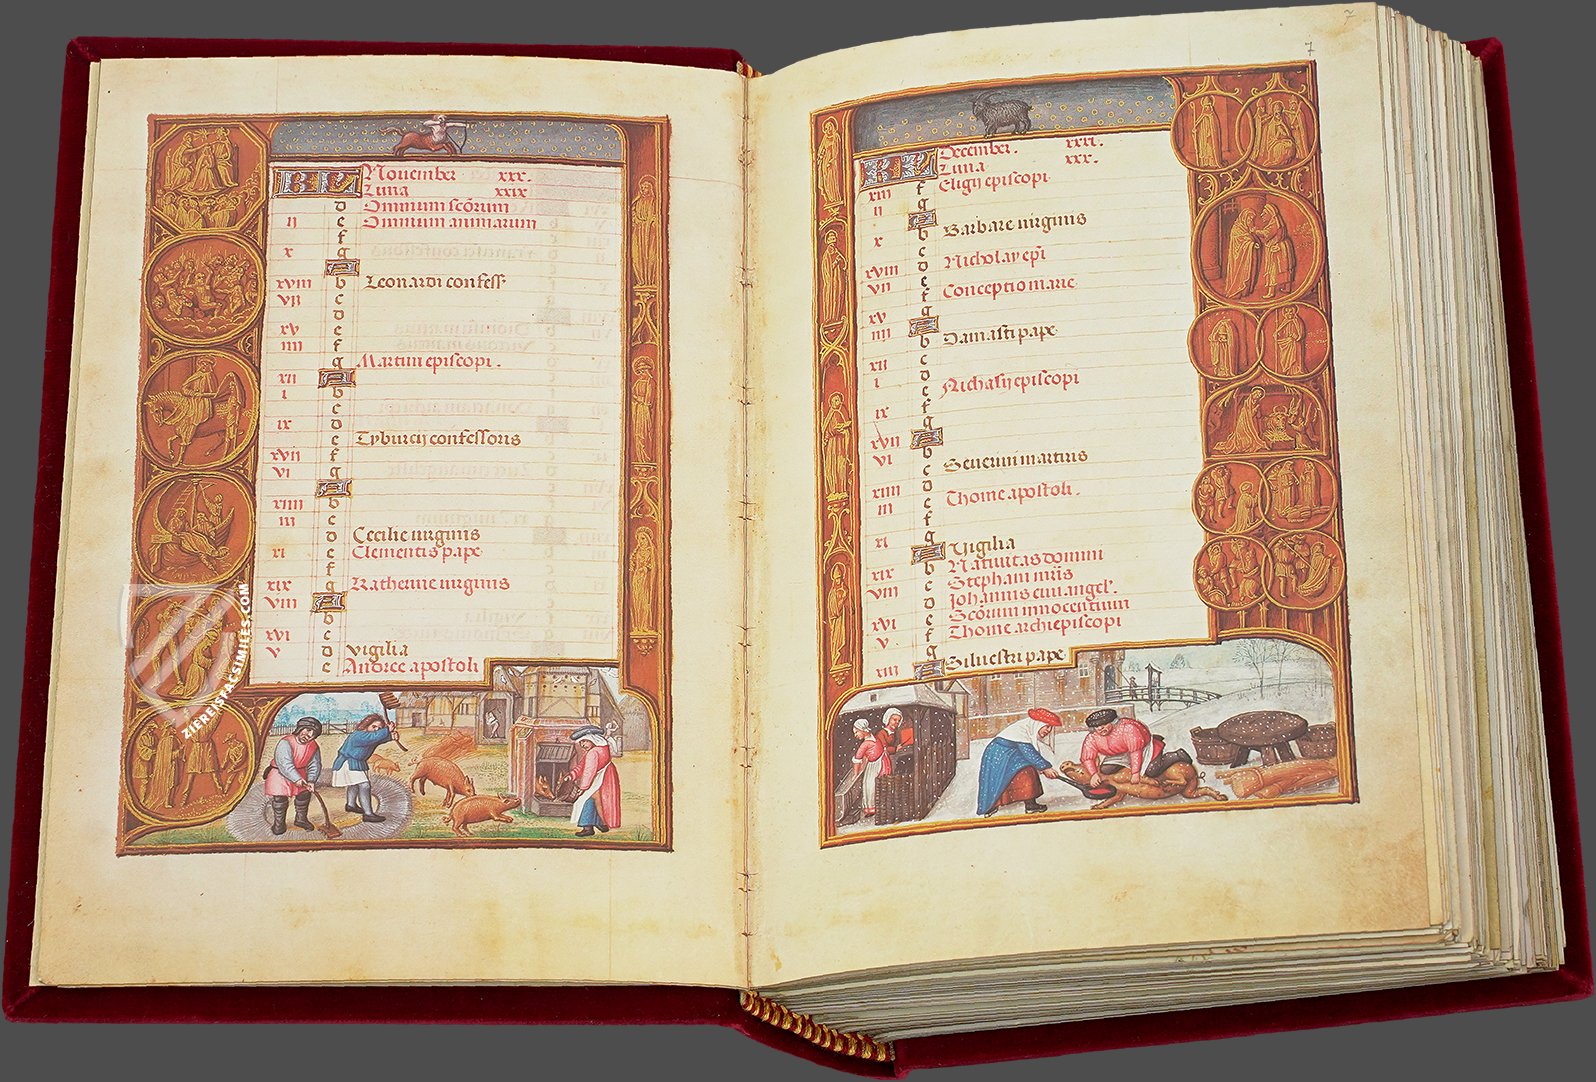 KL November. xxx.
Luna xxix
d Omnium sc̄orum
ii e Omnium animarum
f
x g
A
xviii b Leonardi confess
vii c
d
xv e
iiii f
g Martini episcopi.
xii A
i b
c
ix d
e Tyburcij confessoris
xvii f
vi g
A
xiiii b
iii c
d Cecilie virginis
xi e Clementis pape
f
xix g Katherine virginis
viii A
b
xvi c
v d Vigilia
e Andree apostoli
7
7
KL December. xxxi.
Luna xxx.
xiii f Eligij episcopi
ii g
A Barbare virginis
x b
c Nicholay ep̄i
xviii d
vii e Conceptio marie
f
xv g
iiii A Damasti pape
b
xii c
i d Nichasij episcopi
e
ix f
g
xvii A
vi b Seuerini martiris
c
xiiii d Thome apostoli.
iii e
f
xi g
A Vigilia
xix b Natiuitas domini
c Stephani mr̄is
viii d Johannis euuangel.
e Sc̄orum innocentium
xvi f Thome archiepiscopi
v g
xiii A Siluestri pape
ZIEREISFACSIMILES.COM